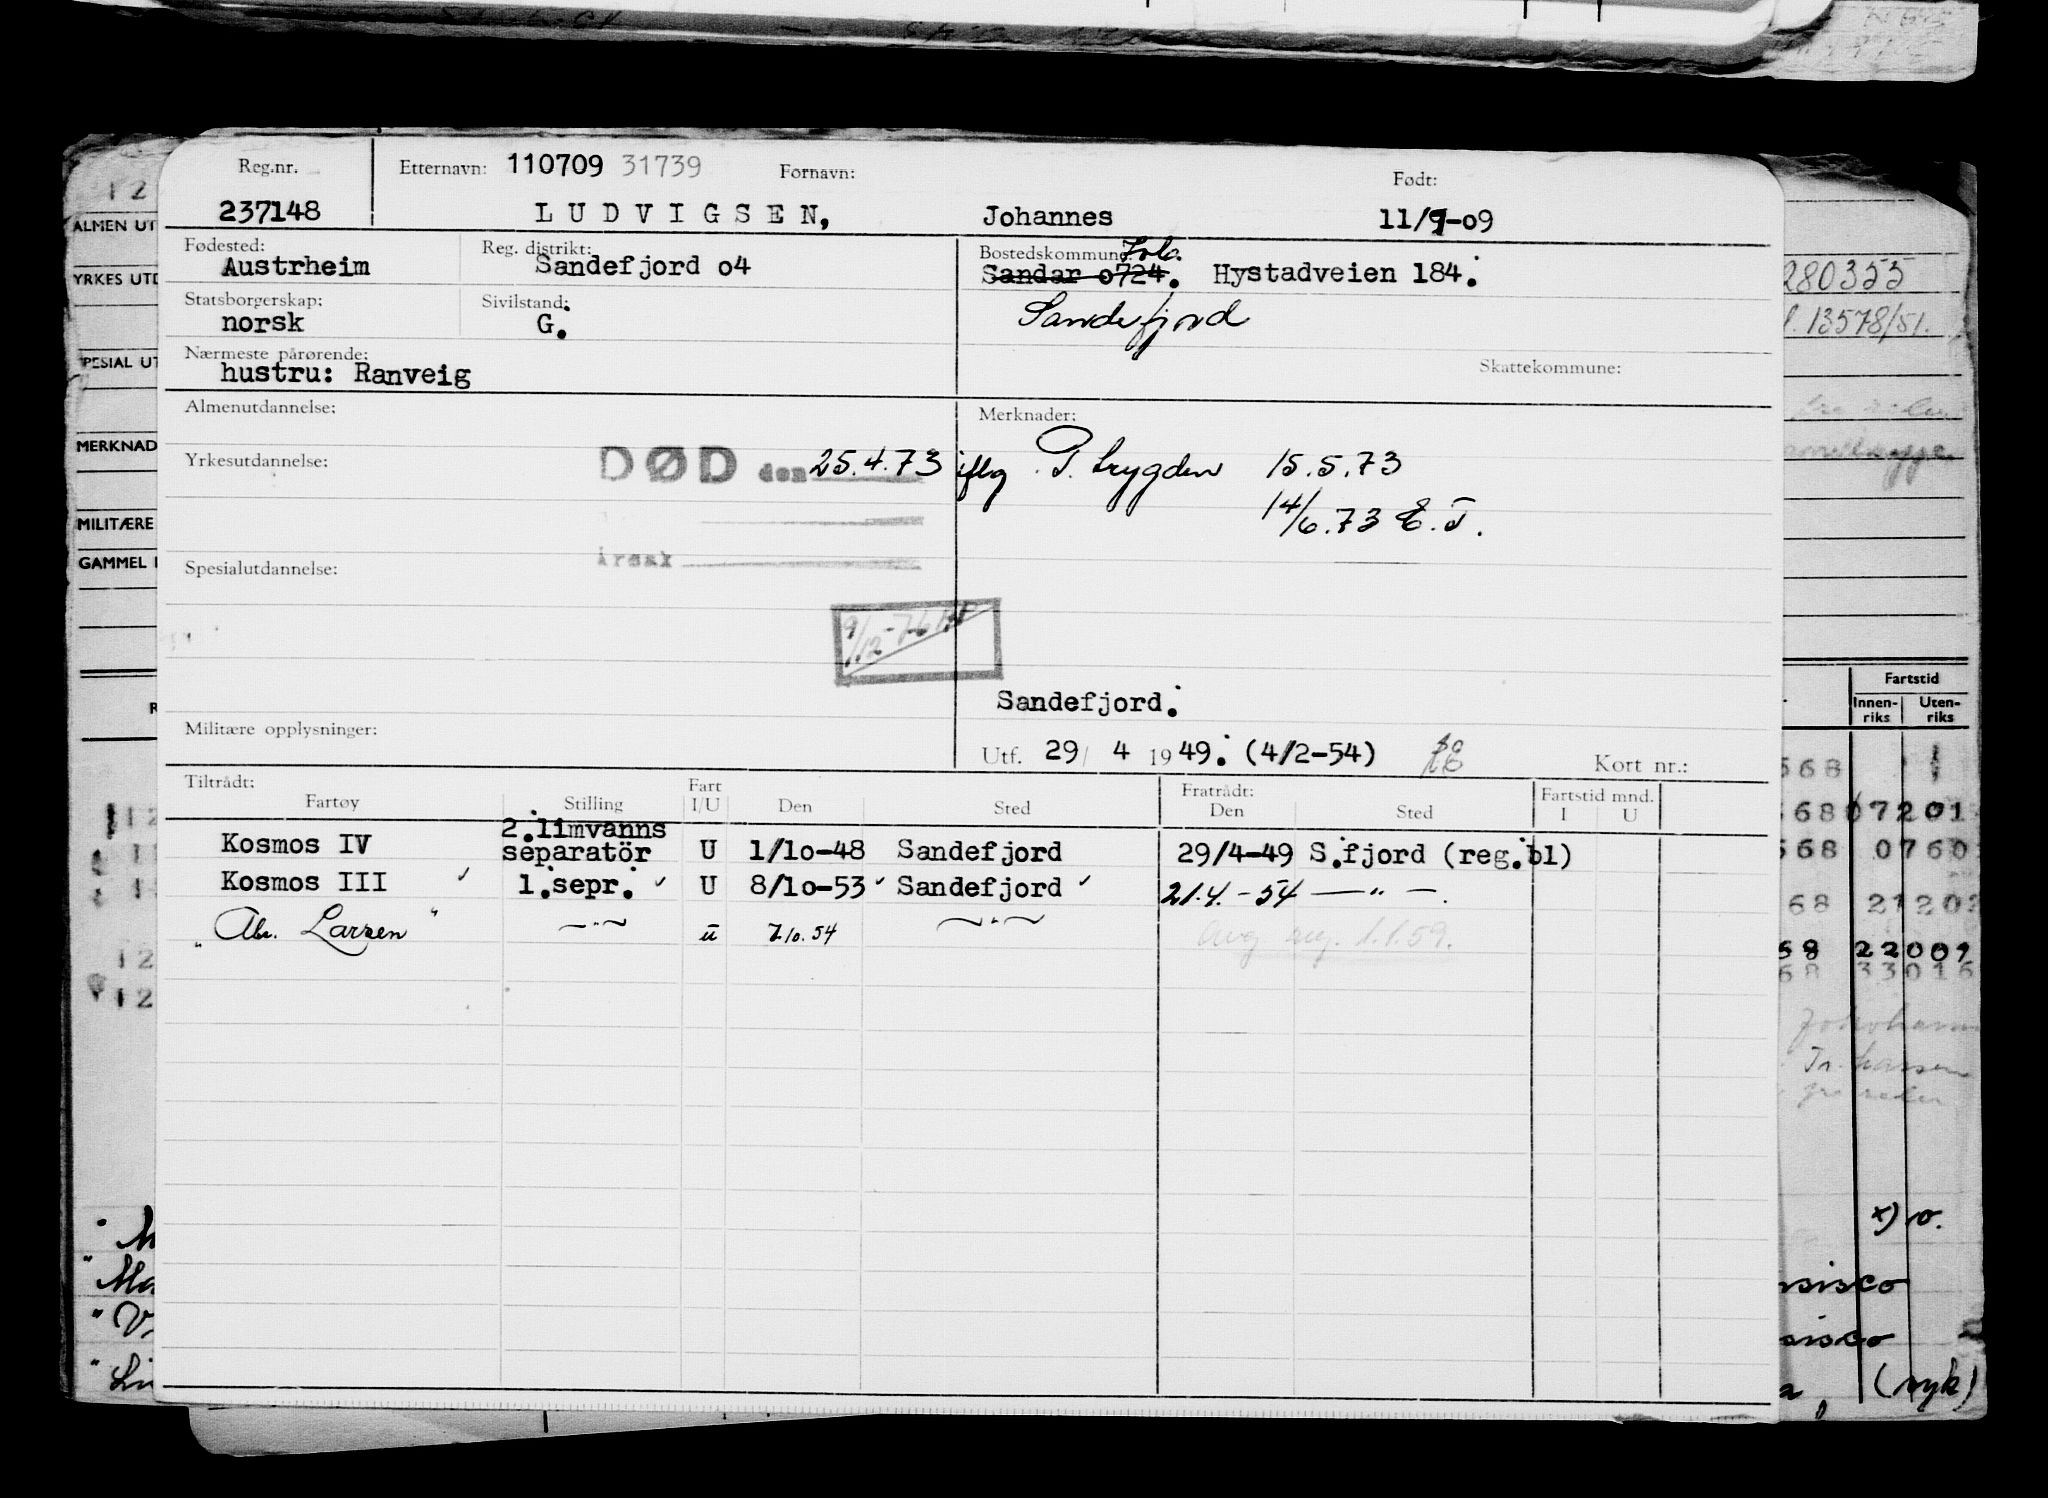 Reg.nr. Etternavn: 110709 31739 Fornavn: Født:
237148 LUDVIGSEN, Johannes 11/7-09
Fødested: Reg. distrikt: Bostedskommune:
Austrheim Sandefjord o4 Sandar o724. Hystadveien 184.
Statsborgerskap: Sivilstand: Sandefjord
norsk G.
Nærmeste pårørende: Skattekommune:
hustru: Ranveig
Almenutdannelse: Merknader:
Yrkesutdannelse: DØD den 25.4.73 iflg P. trygden 15.5.73
14/6.73 E.T.
Spesialutdannelse: Årsak
9/12-76
Sandefjord.
Militære opplysninger: Utf. 29/ 4 1949. (4/2-54) Kort nr.:
Tiltrådt: Fart Fratrådt: Fartstid mnd.
Fartøy Stilling I/U Den Sted Den Sted I U
2.limvanns
Kosmos IV separatör U 1/1o-48 Sandefjord 29/4-49 S.fjord (reg.bl)
Kosmos III ✓ 1.sepr. ✓ U 8/1o-53 ✓ Sandefjord ✓ 21.4.-54 —"—.
"Abr. Larsen" —"— u 7.10.54 —"— Avg 1.1.59.
12
ALMEN UT
YRKES UTD
PESIAL UT
MERKNAD
MILITÆRE
GAMMEL
280355
13578/51.
Fartstid
Innen-riks Uten-riks
568
568 07201
568 0760
68 2120
68 22009
68 33016
x) o.
sisco
sisco
(syk)